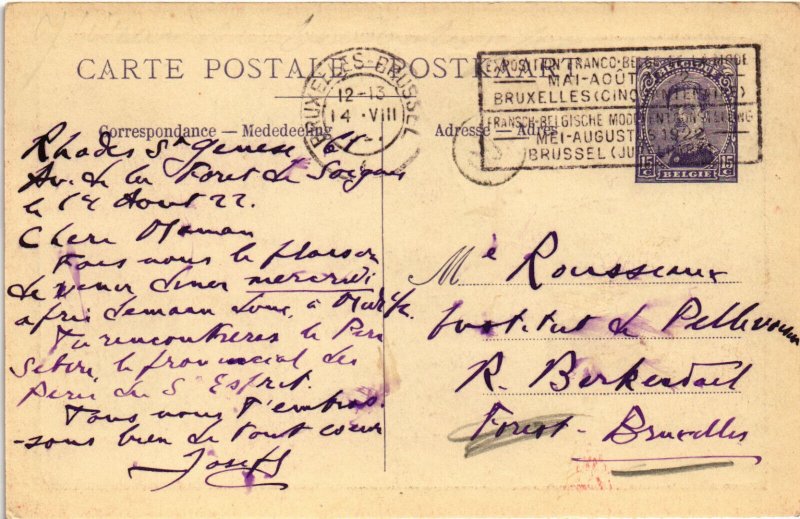 CARTE POSTALE POSTKAART
BRUXELLES-BRUSSEL
12-13
14 · VIII
EXPOSITION FRANCO-BELGE DE LA MODE
MAI-AOÛT
BRUXELLES (CINQUANTENAIRE)
FRANSCH-BELGISCHE MODETENTOONSTELLING
MEI-AUGUSTUS 1922
BRUSSEL (JU
15 c 15 c
BELGIE
Correspondance — Mededeeling
Adresse — Adres
Rhodes St Genèse
Av. de la Foret de Soignes
le 14 Aout 22.
Chere Maman
Fais nous le plaisir
de venir diner mercredi
après demain donc, à Midi ½
Tu rencontreras le Père
le provincial des
Pères du St Esprit.
Tous nous t'embras
-sons bien de tout coeur
Joseph
Me Rousseaux
Institut de
R. Berkendael
Forest - Bruxelles